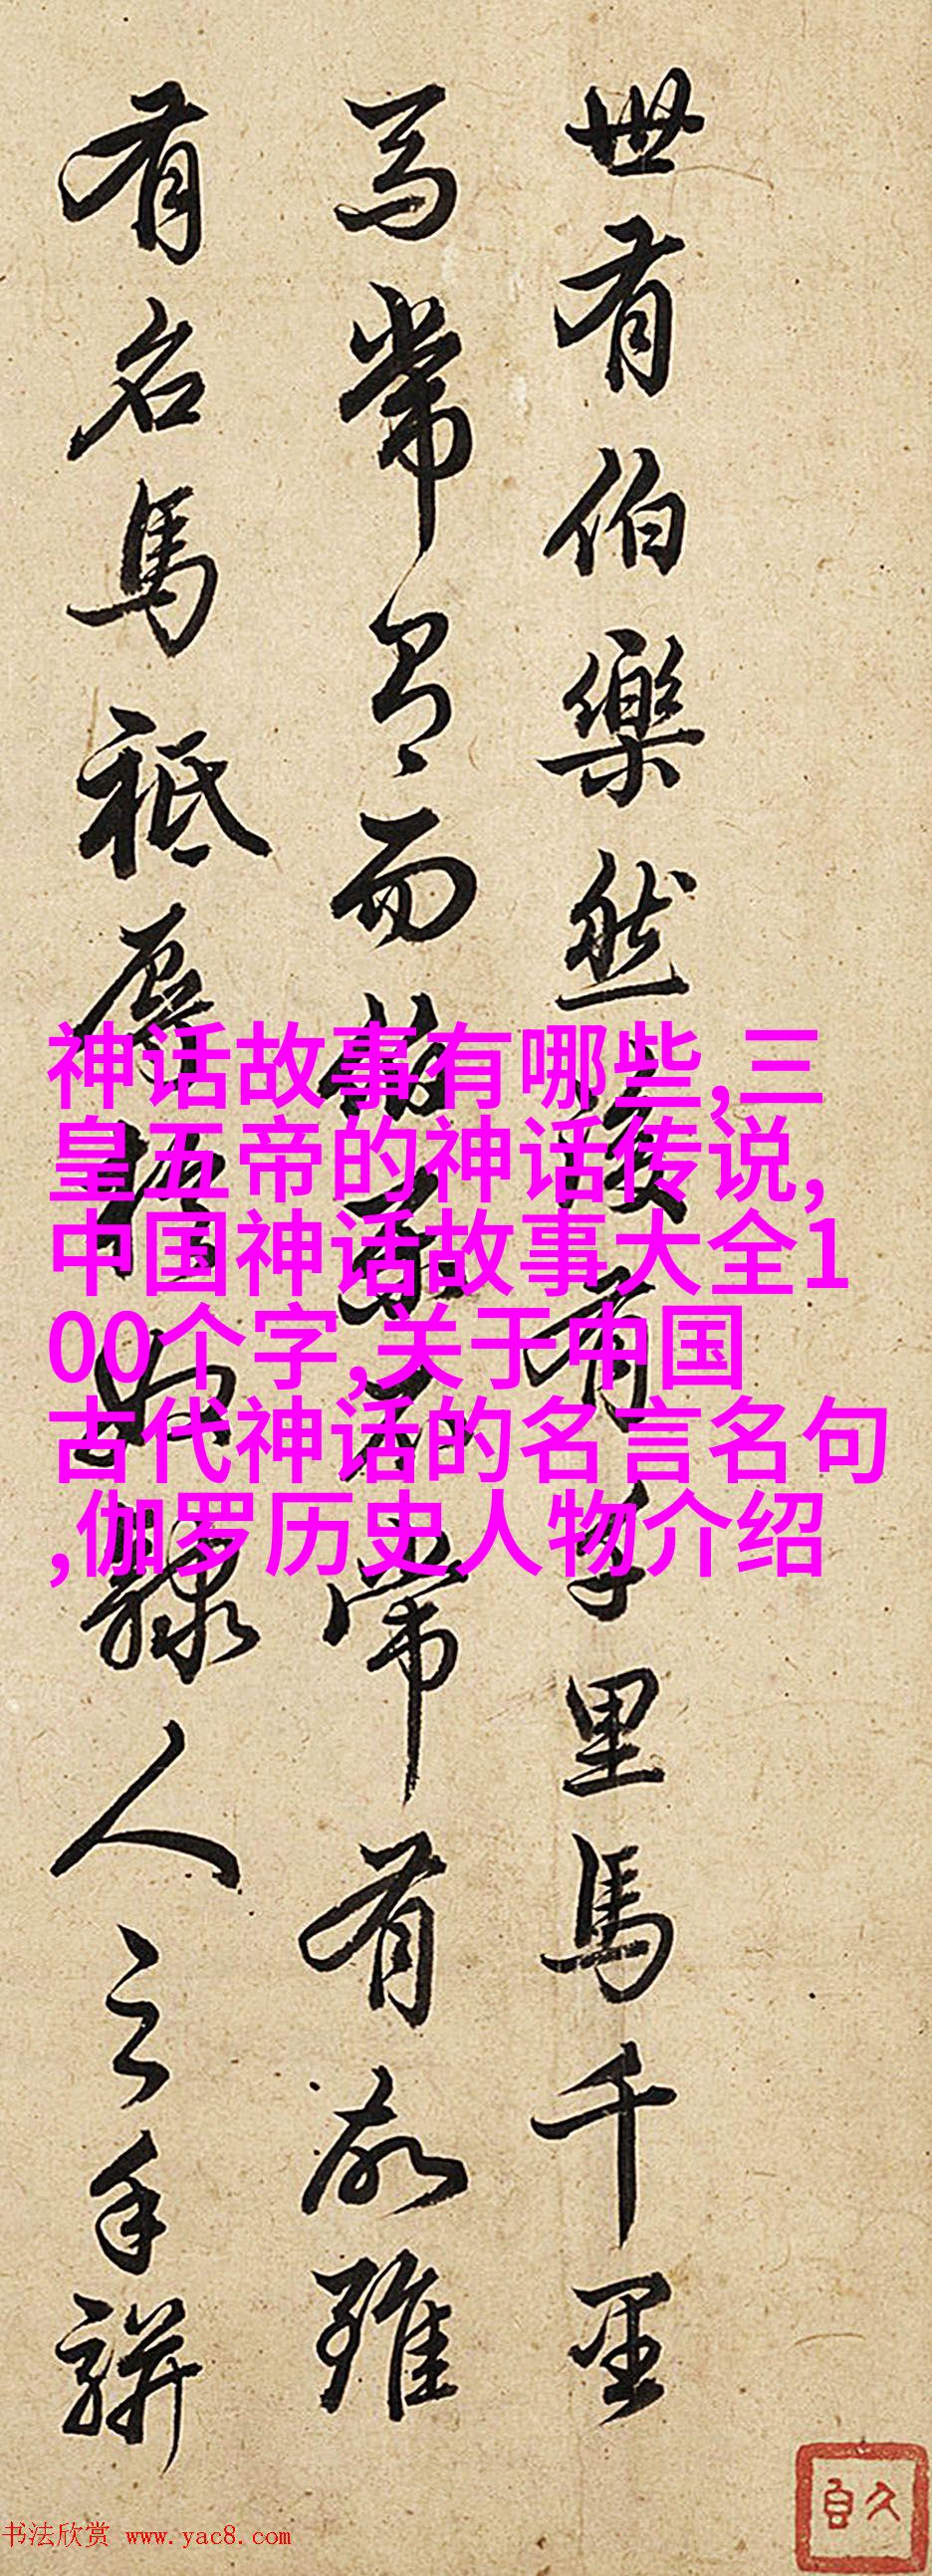 世有伯樂然後有千里馬千里
馬常有而伯樂不常有故雖
有名馬祗辱於奴隸人之手駢
神话故事有哪些,三
皇五帝的神话传说,
中国神话故事大全1
00个字,关于中国
古代神话的名言名句
,伽罗历史人物介绍
书法欣赏 www.yac8.com